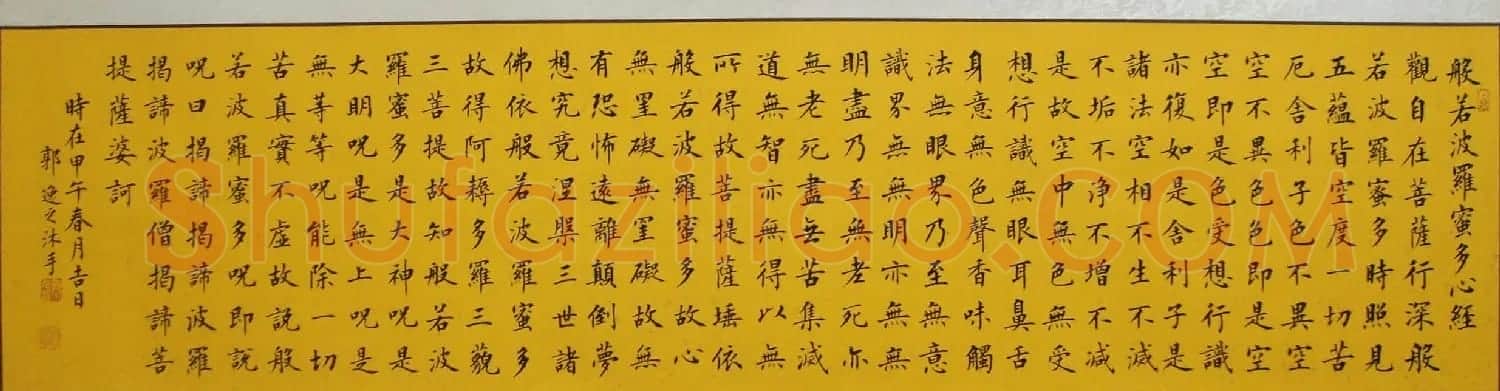 般若波羅蜜多心經
觀自在菩薩行深般
若波羅蜜多時照見
五蘊皆空度一切苦
厄舍利子色不異空
空不異色色即是空
空即是色受想行識
亦復如是舍利子是
諸法空相不生不滅
不垢不淨不增不減
是故空中無色無受
想行識無眼耳鼻舌
身意無色聲香味觸
法無眼界乃至無意
識界無無明亦無無
明盡乃至無老死亦
無老死盡無苦集滅
道無智亦無得以無
所得故菩提薩埵依
般若波羅蜜多故心
無罣礙無罣礙故無
有恐怖遠離顛倒夢
想究竟涅槃三世諸
佛依般若波羅蜜多
故得阿耨多羅三藐
三菩提故知般若波
羅蜜多是大神呪是
大明呪是無上呪是
無等等呪能除一切
苦真實不虛故說般
若波羅蜜多呪即說
呪曰揭諦揭諦波羅
揭諦波羅僧揭諦菩
提薩婆訶
時在甲午春月吉日
郭逸之沐手
Shufaziliao.COM